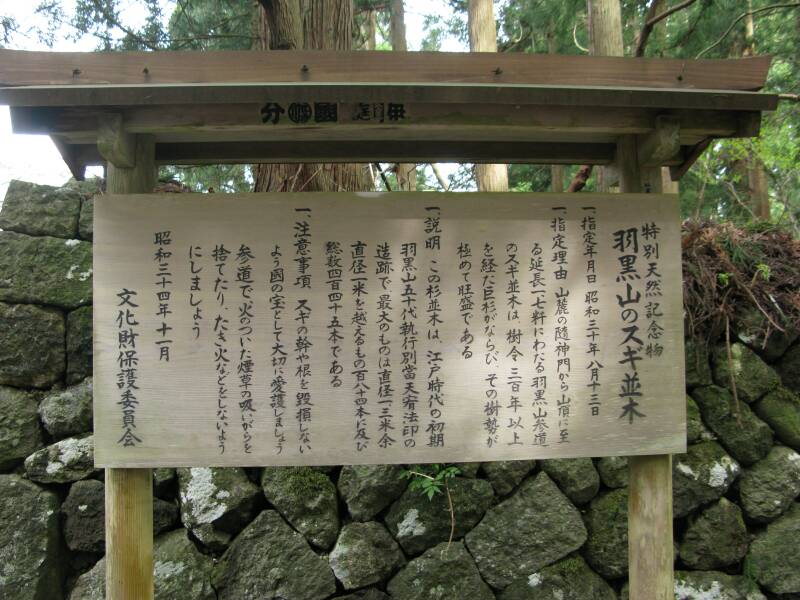 特別天然記念物
羽黒山のスギ並木
一、指定年月日 昭和三十年八月十三日
一、指定理由 山麓の随神門から山頂に至
る延長一、七粁にわたる羽黒山参道
のスギ並木は、樹令三百年以上
を経た巨杉がならび、その樹勢が
極めて旺盛である
一、説明 この杉並木は、江戸時代の初期
羽黒山五十代執行別當天宥法印の
造跡で、最大のものは直径一、三米余
直径一米を越えるもの百八十四本に及び
総数四百四十五本である
一、注意事項 スギの幹や根を毀損しない
よう國の宝として大切に愛護しましょう
参道で、火のついた煙草の吸いがらを
捨てたり、たき火などをしないよう
にしましょう
昭和三十四年十一月
文化財保護委員会